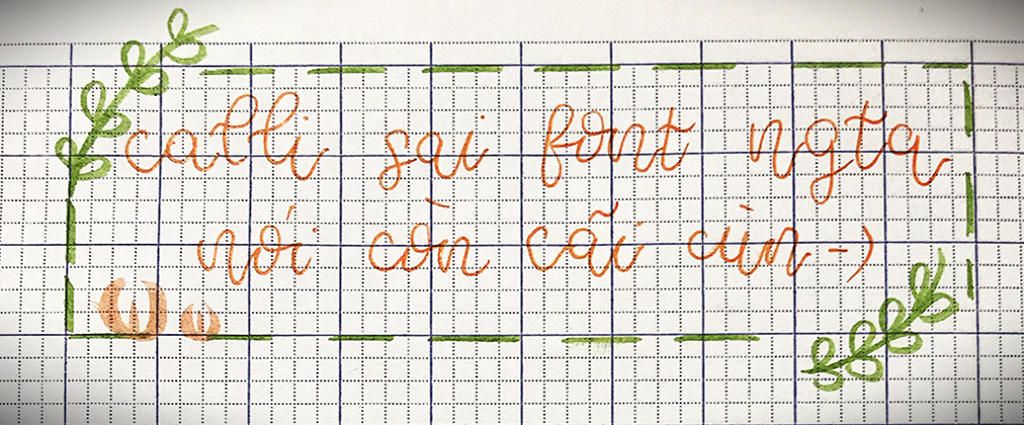 calli sai font ngta
nói còn cãi cùn -)